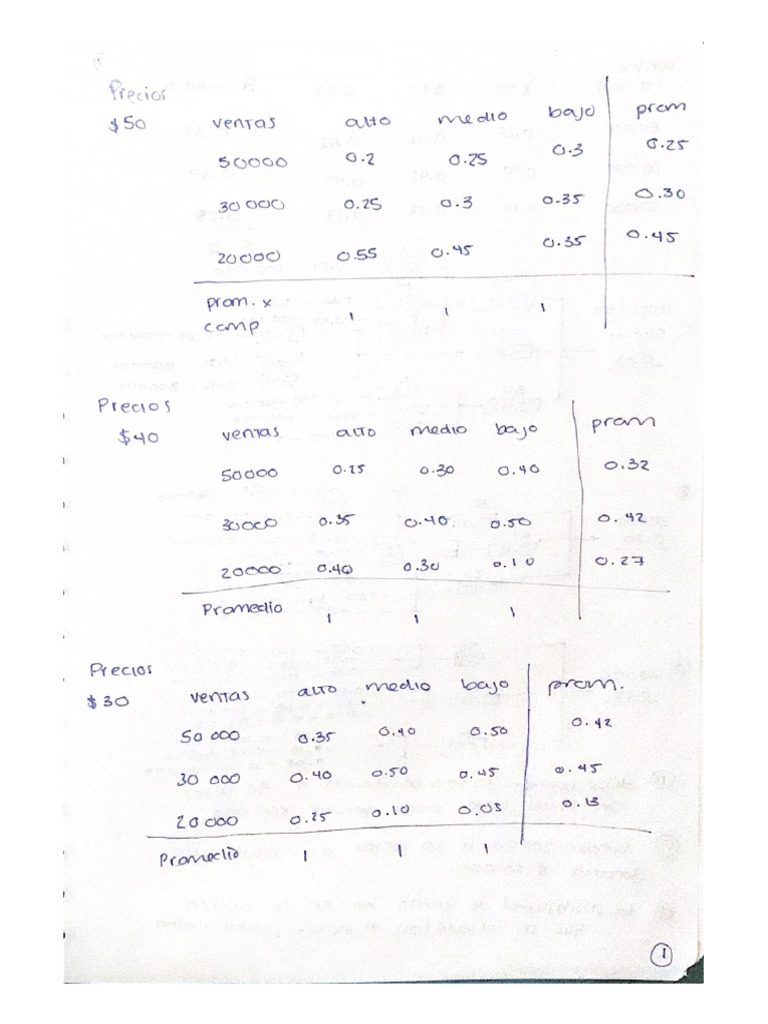 Precios
$50 ventas alto medio bajo prom
50000 0.2 0.25 0.3 0.25
30 000 0.25 0.3 0.35 0.30
20000 0.55 0.45 0.35 0.45
prom. x
comp 1 1 1
Precios
$40 ventas alto medio bajo prom
50000 0.25 0.30 0.40 0.32
30000 0.35 0.40 0.50 0.42
20000 0.40 0.30 0.10 0.27
Promedio 1 1 1
Precios
$30 ventas alto medio bajo prom.
50 000 0.35 0.40 0.50 0.42
30 000 0.40 0.50 0.45 0.45
20 000 0.25 0.10 0.05 0.13
Promedio 1 1 1
1